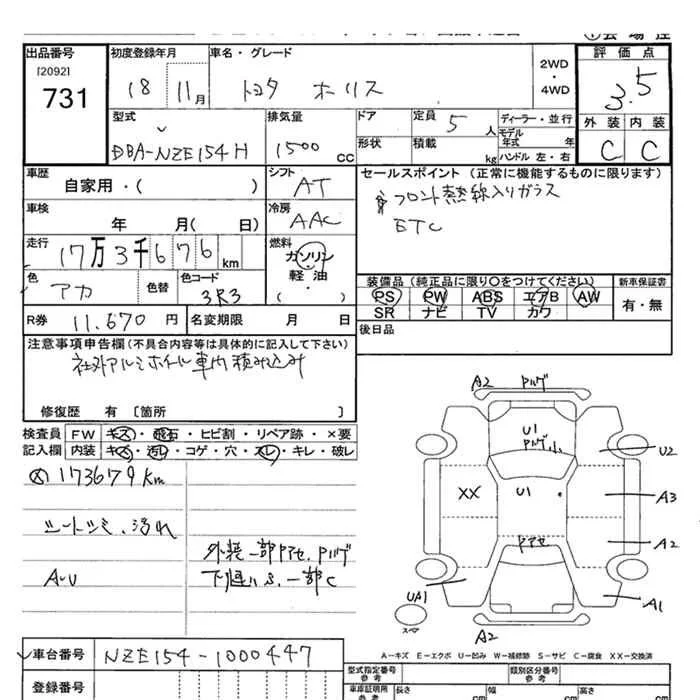 出品番号
[2092]
731
初度登録年月
18 11月
車名・グレード
トヨタ ホリス
2WD
・
4WD
評価点
3.5
外装 内装
C C
型式
DBA-NZE154H
排気量
1500 CC
ドア
形状
定員 5 人
積載 kg
ディーラー・並行
モデル
年式 年
ハンドル 左・右
車歴
自家用・( )
シフト
AT
セールスポイント (正常に機能するものに限ります)
フロント熱線入りガラス
ETC
車検
年 月( 日)
冷房
AAC
走行
17万3千676 km
燃料
ガソリン
軽油
( )
色
アカ
色替
色コード
3R3
装備品 (純正品に限り〇をつけてください)
PS PW ABS エアB AW
SR ナビ TV カワ
新車保証書
有・無
R券 11.670 円
名変期限 月 日
後日品
注意事項申告欄(不具合内容等は具体的に記入して下さい)
社外アルミホイール車内積み込み
修復歴 有 [箇所 ]
検査員 FW キズ・飛石・ヒビ割・リペア跡・×要
記入欄 内装 キズ・汚レ・コゲ・穴・スレ・キレ・破レ
173679km
シートシミ、汚れ
A-U
外装一部Pアセ、Pハゲ
下廻りS、一部C
A2 Pハゲ
U1
Pハゲ小
U2
XX
U1
A3
A2
Pアセ
UA1
A1
スペア
A2
A-キズ E-エクボ U-凹み W-補修跡 S-サビ C-腐食 XX-交換済
車台番号 NZE154-1000447
登録番号
型式指定番号
参考
類別区分番号
参考
車庫証明用
参考
長さ cm
幅 cm
高さ cm